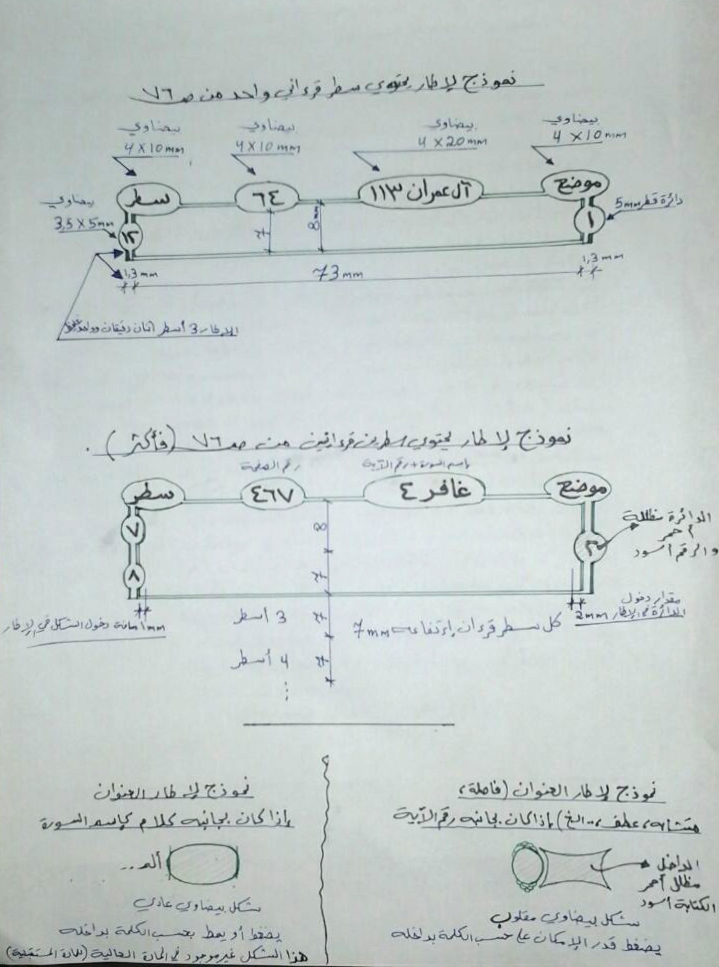 نموذج لإطار يحتوي سطر قرءاني واحد من صـ ٧٦
بيضاوي
4 X 10 mm
بيضاوي
4 X 20 mm
بيضاوي
4 X 10 mm
بيضاوي
4 X 10 mm
موضع
آل عمران ١١٣
٦٤
سطر
دائرة قطر 5mm
١
8mm
7
١٢
بيضاوي
3,5 X 5mm
1,3 mm
73mm
1,3 mm
الإطار 3 أسطر اثنان دقيقان وواحد
نموذج لإطار يحتوي سطرين قرءانيين من صـ ٧٦ (فأكثر).
باسم السورة + رقم الآية
رقم الصفحة
موضع
غافر ٤
٤٦٧
سطر
الدائرة مظللة
أحمر
والرقم أسود
8
٧
7
٨
مقدار دخول
الدائرة في الإطار 2mm
1mm مسافة دخول الشكل في الإطار
كل سطر قرءان إرتفاعه 7mm
7
3 أسطر
7
4 أسطر
نموذج لإطار العنوان (فاصلة،
متشابه، عطف،.. الخ) إذا كان بجانبه رقم الآية
الداخل
مظلل أحمر
الكتابة أسود
شكل بيضاوي مقلوب
يضغط قدر الإمكان على حسب الكلمة بداخله
نموذج لإطار العنوان
إذا كان بجانبه كلام كاسم السورة
ألم..
شكل بيضاوي عادي
يضغط أو يمط بحسب الكلمة بداخله
هذا الشكل غير موجود في المادة الحالية (المادة المستقبلية)